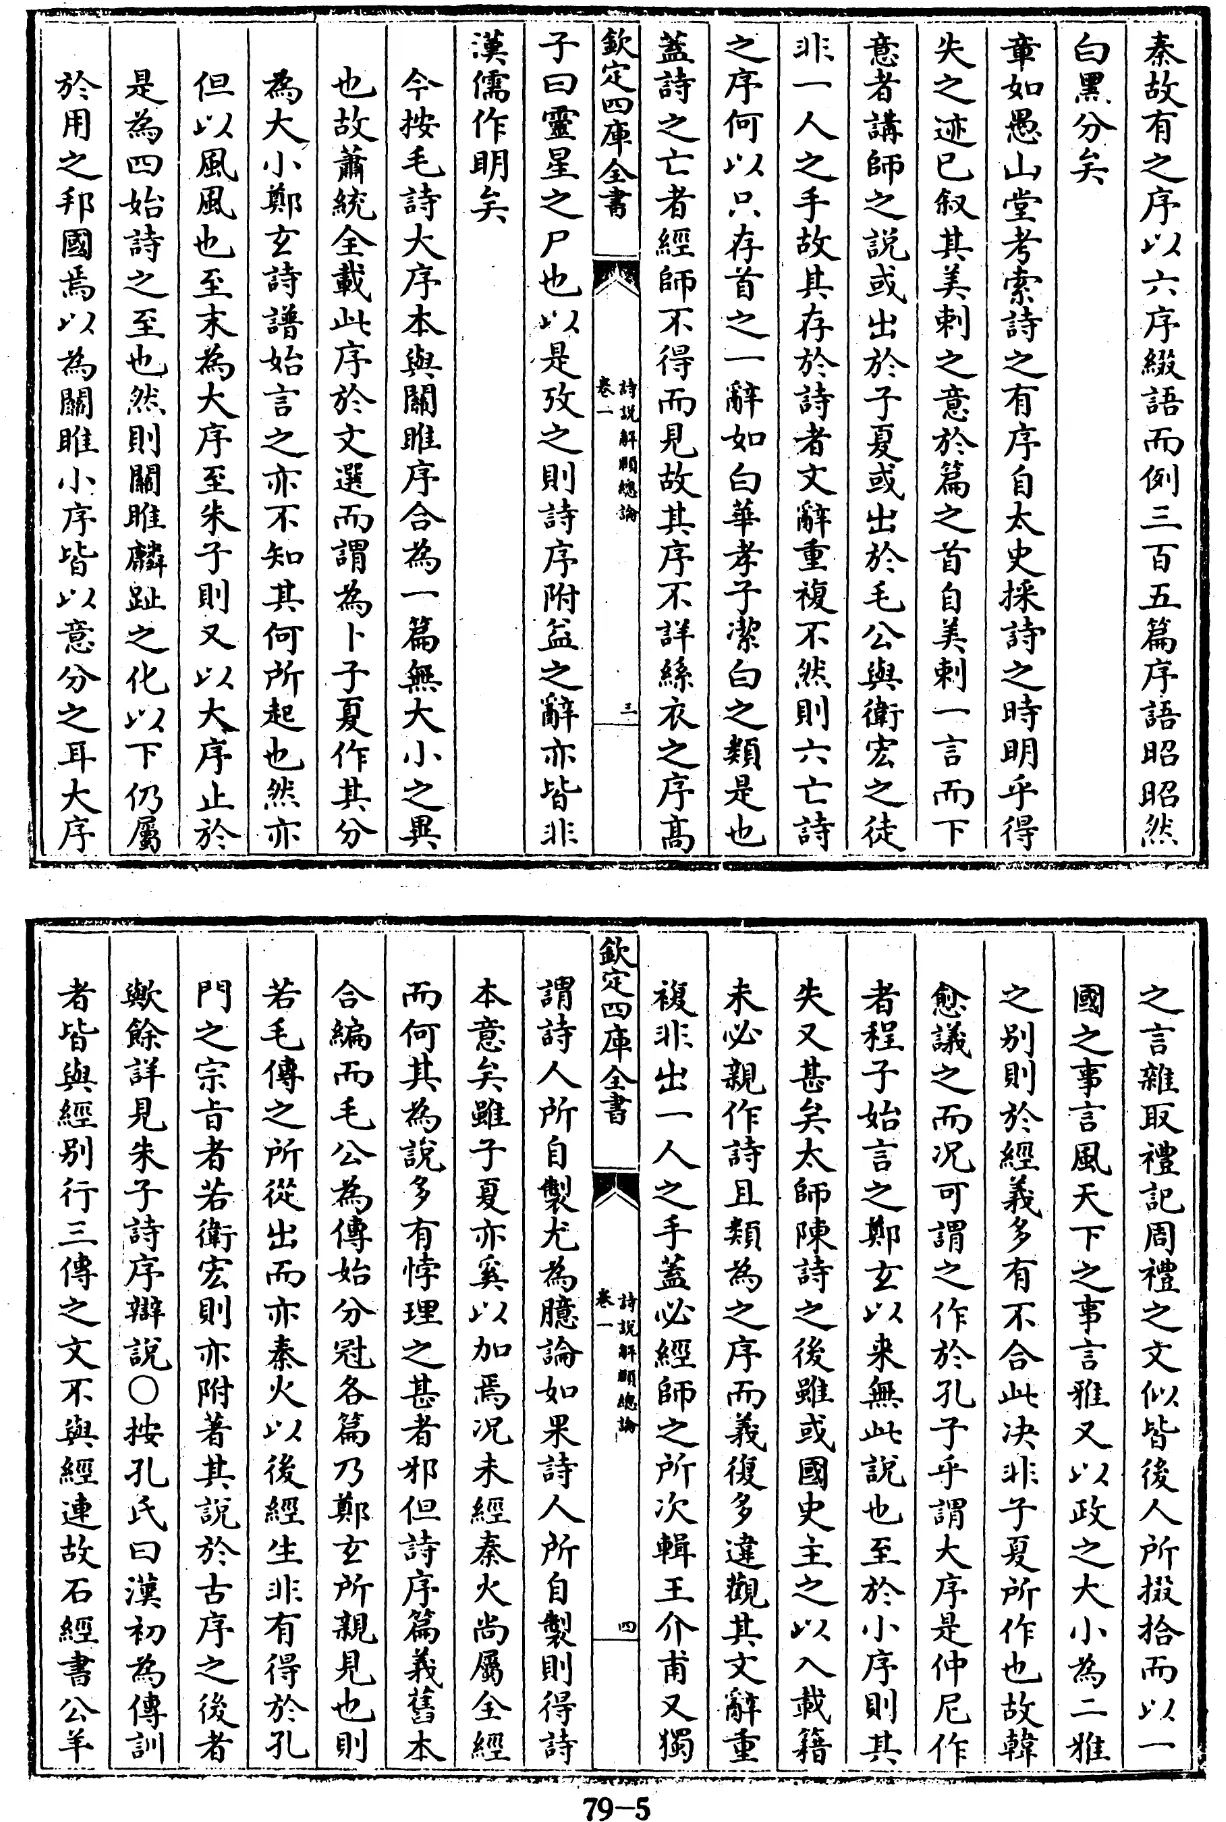 秦故有之序以六序綴語而例三百五篇序語昭昭然
白黑分矣
章如愚山堂考索詩之有序自太史採詩之時明乎得
失之迹已叙其美刺之意於篇之首自美刺一言而下
意者講師之說或出於子夏或出於毛公與衛宏之徒
非一人之手故其存於詩者文辭重複不然則六亡詩
之序何以只存首之一辭如白華孝子潔白之類是也
蓋詩之亡者經師不得而見故其序不詳絲衣之序高
欽定四庫全書
詩說解頤總論
卷一
三
子曰靈星之尸也以是攷之則詩序附益之辭亦皆非
漢儒作明矣
今按毛詩大序本與關雎序合為一篇無大小之異
也故蕭統全載此序於文選而謂為卜子夏作其分
為大小鄭玄詩譜始言之亦不知其何所起也然亦
但以風風也至末為大序至朱子則又以大序止於
是為四始詩之至也然則關雎麟趾之化以下仍屬
於用之邦國焉以為關雎小序皆以意分之耳大序
之言雜取禮記周禮之文似皆後人所掇拾而以一
國之事言風天下之事言雅又以政之大小為二雅
之別則於經義多有不合此決非子夏所作也故韓
愈議之而况可謂之作於孔子乎謂大序是仲尼作
者程子始言之鄭玄以來無此說也至於小序則其
失又甚矣太師陳詩之後雖或國史主之以入載籍
未必親作詩且類為之序而義復多違觀其文辭重
複非出一人之手蓋必經師之所次輯王介甫又獨
欽定四庫全書
詩說解頤總論
卷一
四
謂詩人所自製尤為臆論如果詩人所自製則得詩
本意矣雖子夏亦奚以加焉况未經秦火尚屬全經
而何其為說多有悖理之甚者邪但詩序篇義舊本
合編而毛公為傳始分冠各篇乃鄭玄所親見也則
若毛傳之所從出而亦秦火以後經生非有得於孔
門之宗旨者若衛宏則亦附著其說於古序之後者
歟餘詳見朱子詩序辯說○按孔氏曰漢初為傳訓
者皆與經別行三傳之文不與經連故石經書公羊
79-5